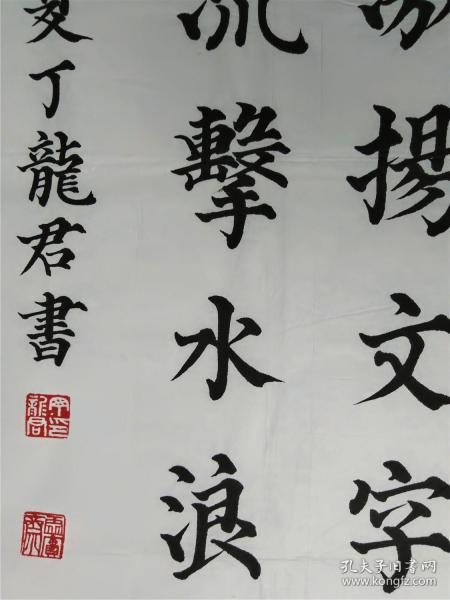 揚文字
流擊水浪
夏丁龍君書
孔夫子旧书网
www.kongfz.com